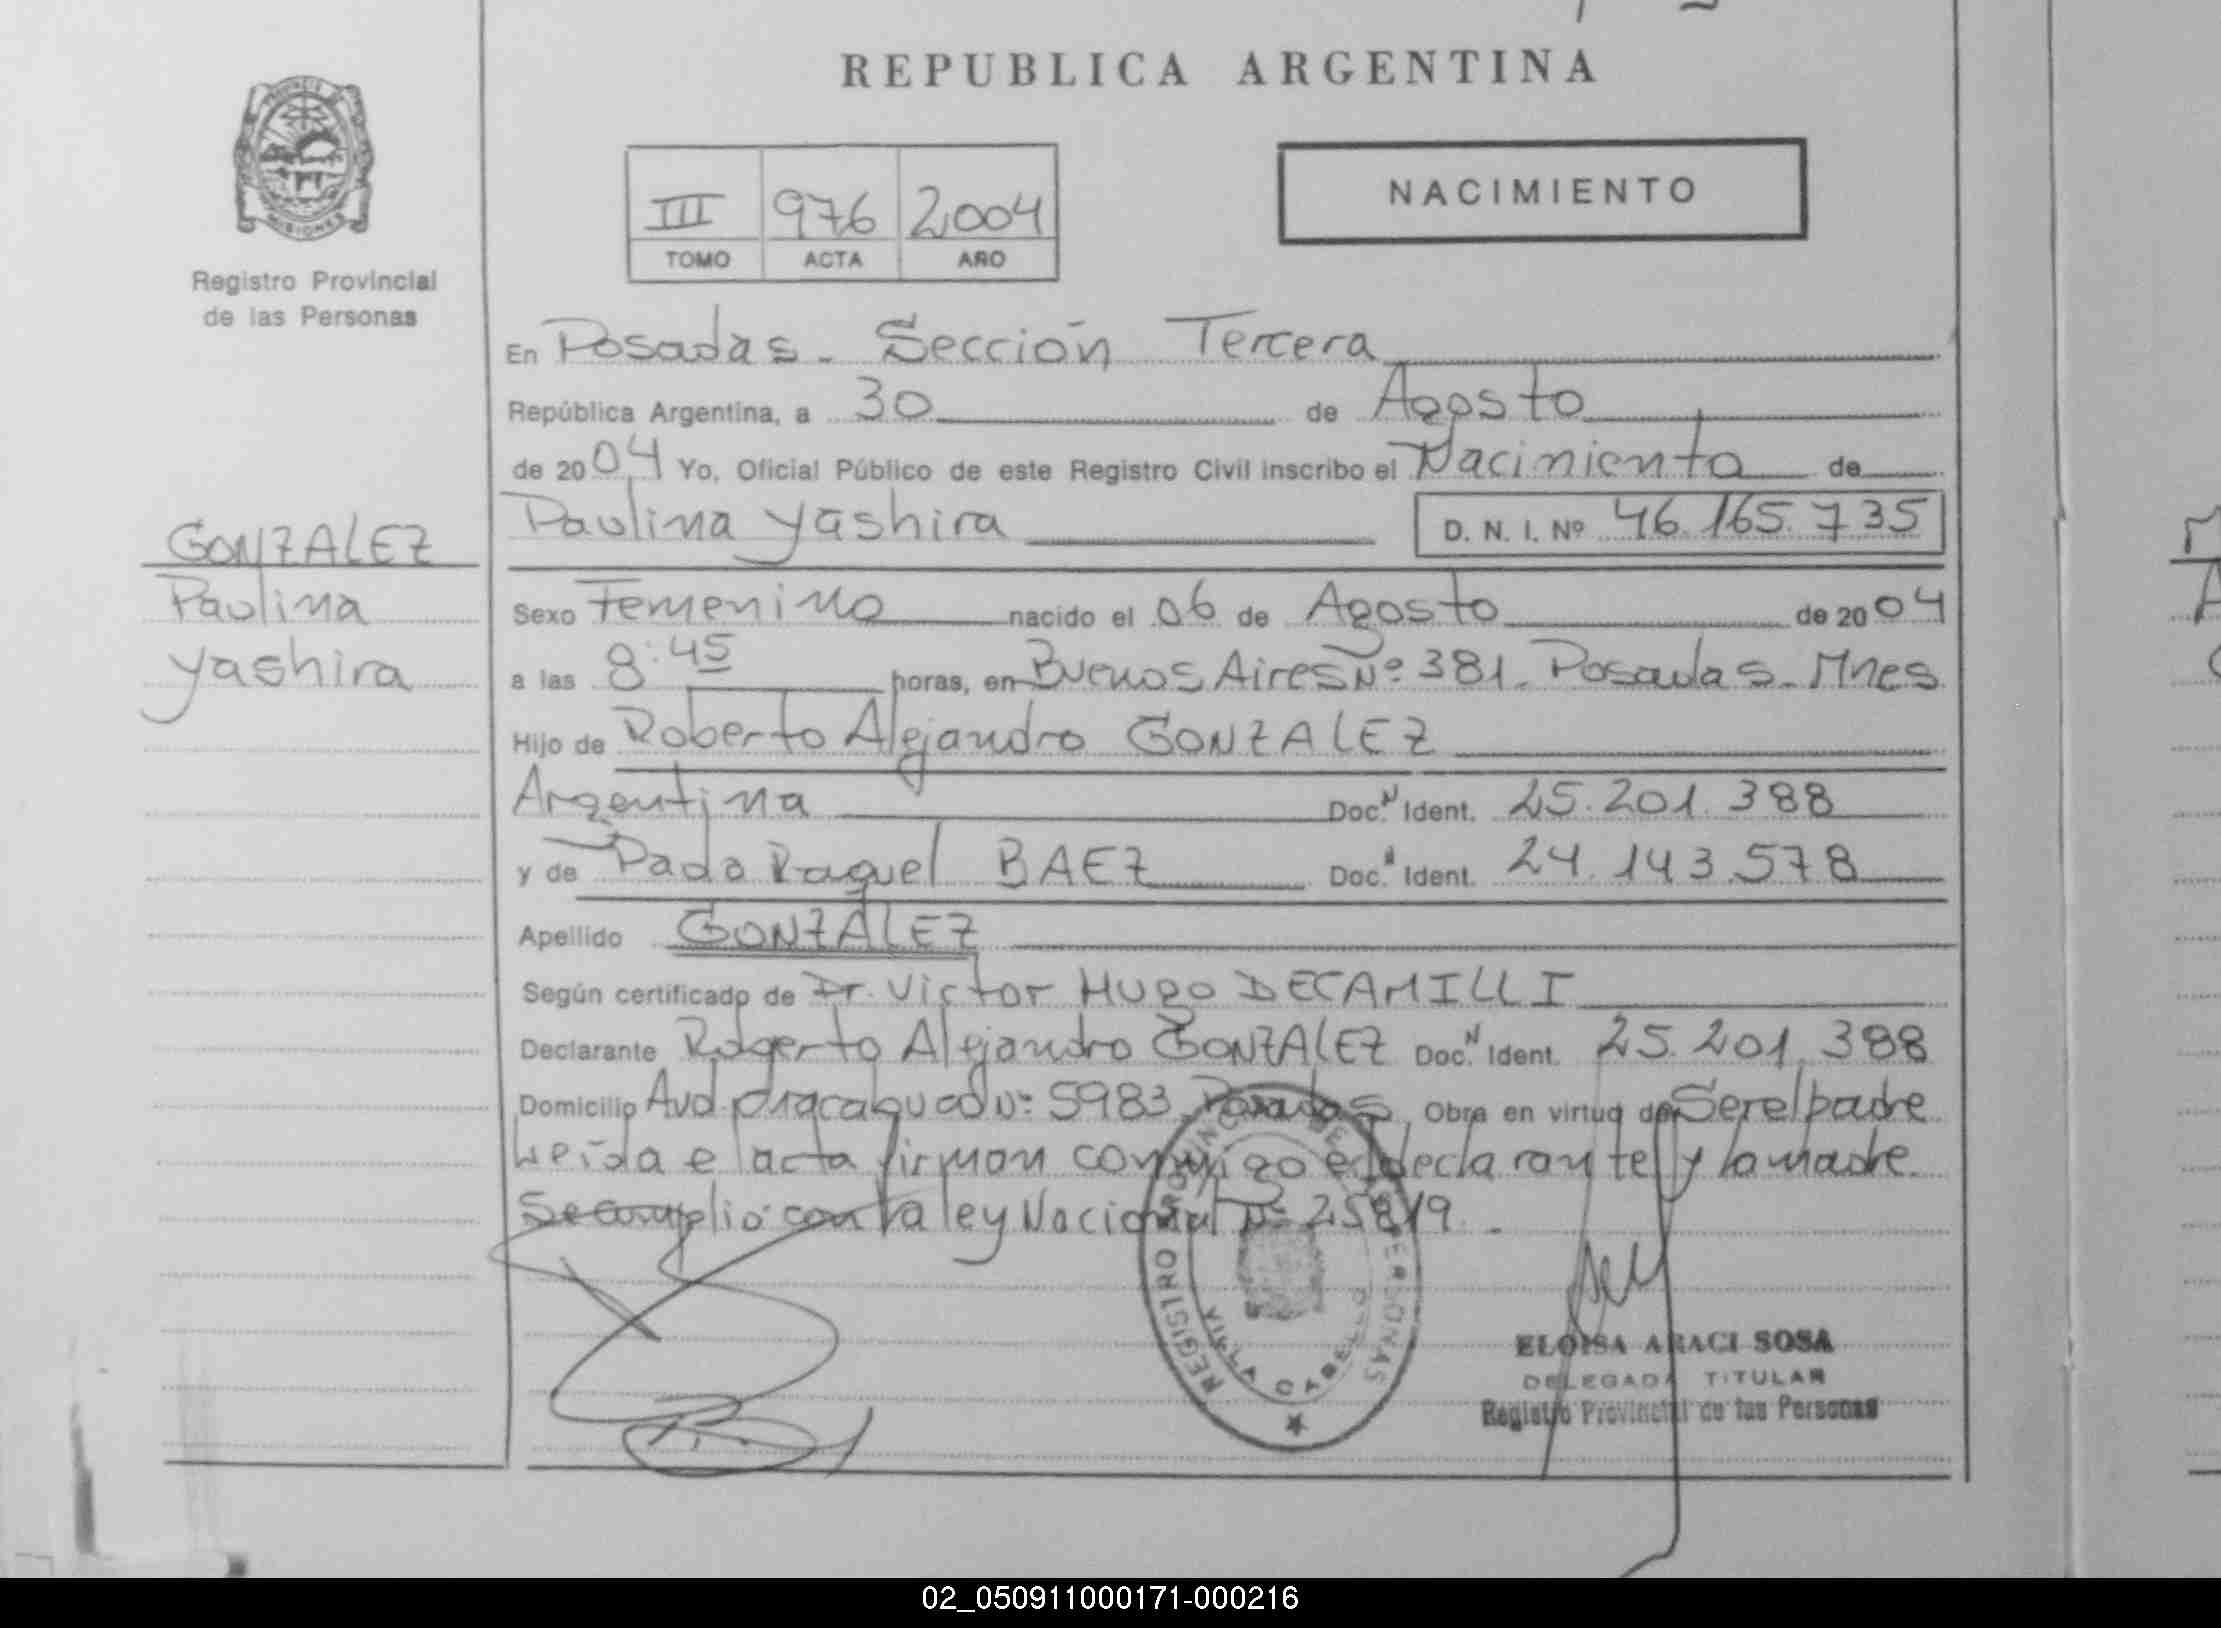 REPUBLICA ARGENTINA
PROVINCIA DE MISIONES
Registro Provincial
de las Personas
III 976 2004
TOMO ACTA AÑO
NACIMIENTO
En Posadas - Sección Tercera
República Argentina, a 30 de Agosto
de 2004 Yo, Oficial Público de este Registro Civil inscribo el Nacimiento de
Paulina Yashira D. N. I. Nº 46.165.735
GONZALEZ
Paulina
Yashira
Sexo Femenino nacido el 06 de Agosto de 2004
a las 8:45 horas, en Buenos Aires Nº 381 - Posadas - Mnes
Hijo de Roberto Alejandro GONZALEZ
Argentina Doc. N Ident. 25.201.388
y de Raquel BAEZ Doc. N Ident. 24.143.578
Apellido GONZALEZ
Según certificado de Dr. Victor Hugo DECAMILLI
Declarante Roberto Alejandro GONZALEZ Doc. N Ident. 25.201.388
Domicilio Avd. Nº 5983 Posadas, Obra en virtud de Ser el padre
Leida el acta firman conmigo el declarante y la madre
Se cumplio con la ley Nacional Nº 25819.
REGISTRO PROVINCIAL DE LAS PERSONAS
VILLA CABELLO
ELOISA ARACI SOSA
DELEGADA TITULAR
Registro Provincial de las Personas
02_050911000171-000216